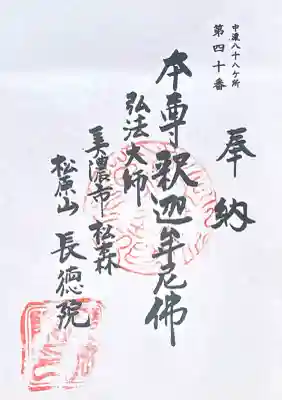 中濃八十八ケ所
第四十番
奉納
本尊釈迦牟尼佛
弘法大師
美濃市松森
松原山長徳院